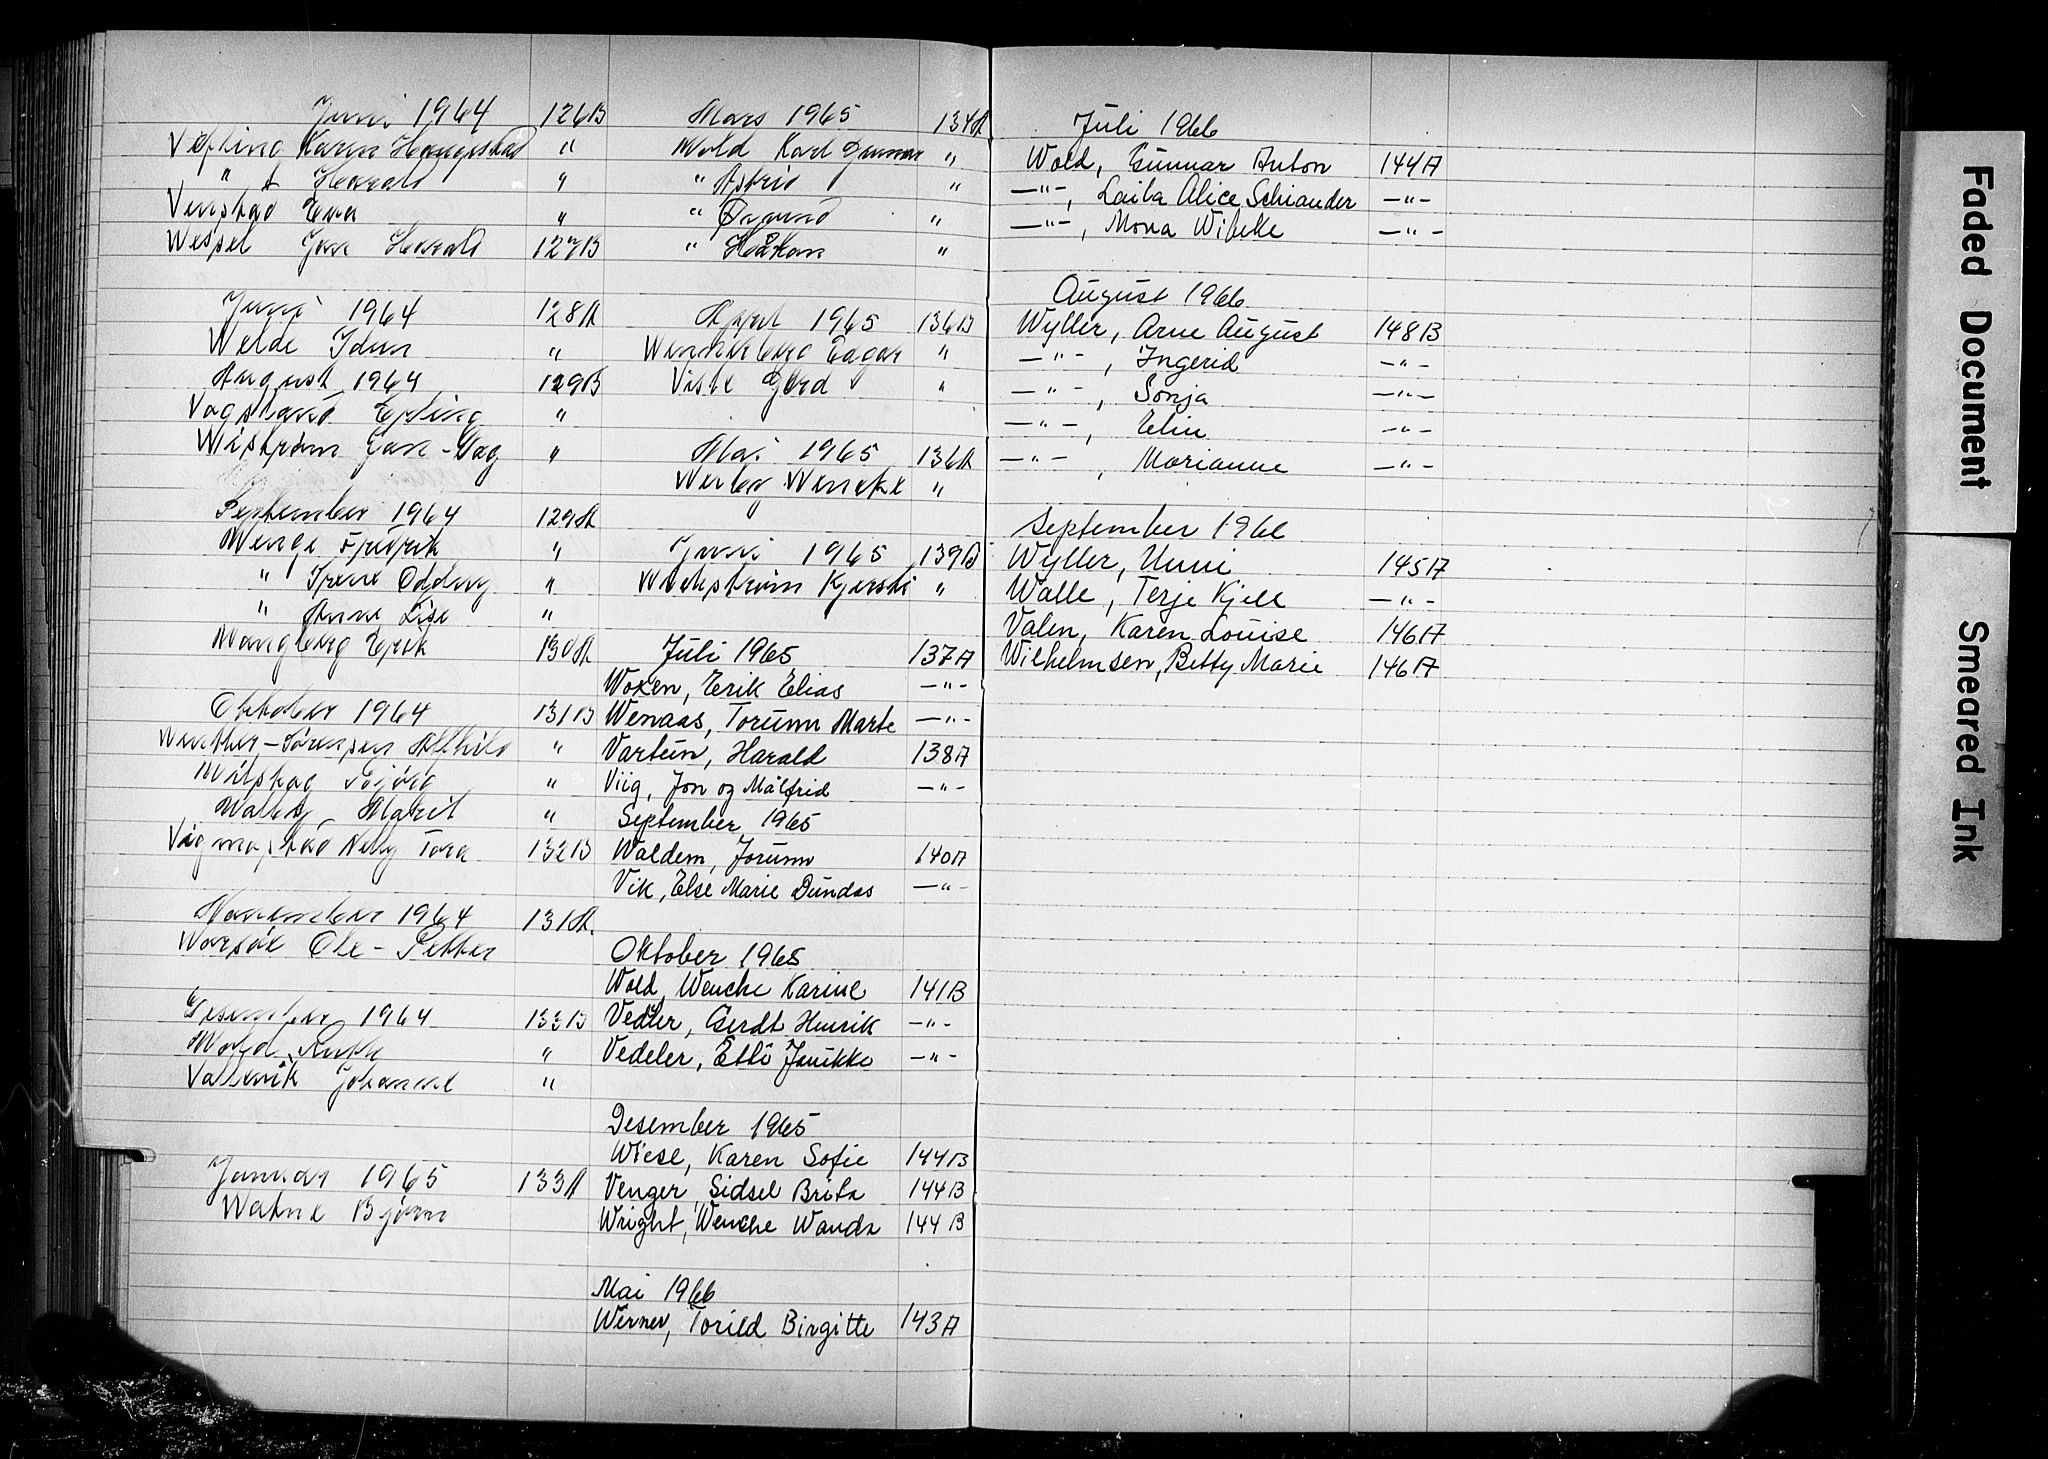 Juni 1964 126B
Karen Haugstad "
" A Harald "
Venstad Eva "
Wessel Jan Harald 127B
Juni 1964 128A
Welde Idun "
August 1964 129B
Vagsland Erling "
Wistrøm Jan-Dag "
September 1964 129A
Wenge Fridrik "
" Irene Oddny "
" Anne Lise "
Wangberg Erik 130A
Oktober 1964 131B
Winther-Sørensen Alfhild "
"
Marit "
Nelly Tora 132B
November 1964 131A.
Ole-Petter
Desember 1964 133B
Wold Ruth "
Vallevik Johannes "
Januar 1965 133A
Watne Bjørn
Mars 1965 134A
Wold Karl Gunnar "
" Astrid "
" Øyvind "
" Håkon "
April 1965 136B
Wennerberg Edgar "
Viste Gerd "
Mai 1965 136A
Wenche "
Juni 1965 139B
Wickstrøm Kjersti "
Juli 1965 137A
Woxen, Erik Elias —"—
Wenaas, Torunn Marte —"—
Vartun, Harald 138A
Viig, Jon og Målfrid —"—
September 1965
Waldem, Jorunn 140A
Vik, Else Marie Dundas —"—
Oktober 1965
Wold, Wenche Karine 141B
Vedeler, Gerdt Henrik —"—
Vedeler, Janikke —"—
Desember 1965
Wiese, Karen Sofie 144B
Venger, Sidsel Brita 144B
Wright, Wenche Wanda 144B
Mai 1966
Werner, Torild Birgitte 143A
Juli 1966
Wold, Gunnar Anton 144A
—"—, Laila Alice Schiander —"—
—"—, Mona Wibeke —"—
August 1966
Wyller, Arne August 148B
—"—, Ingerid —"—
—"—, Sonja —"—
—"—, Elin —"—
—"—, Marianne —"—
September 1966
Wyller, Unni 145A
Walle, Terje Kjell —"—
Valen, Karen Louise 146A
Wilhelmsen, Betty Marie 146A
Faded Document
Smeared Ink